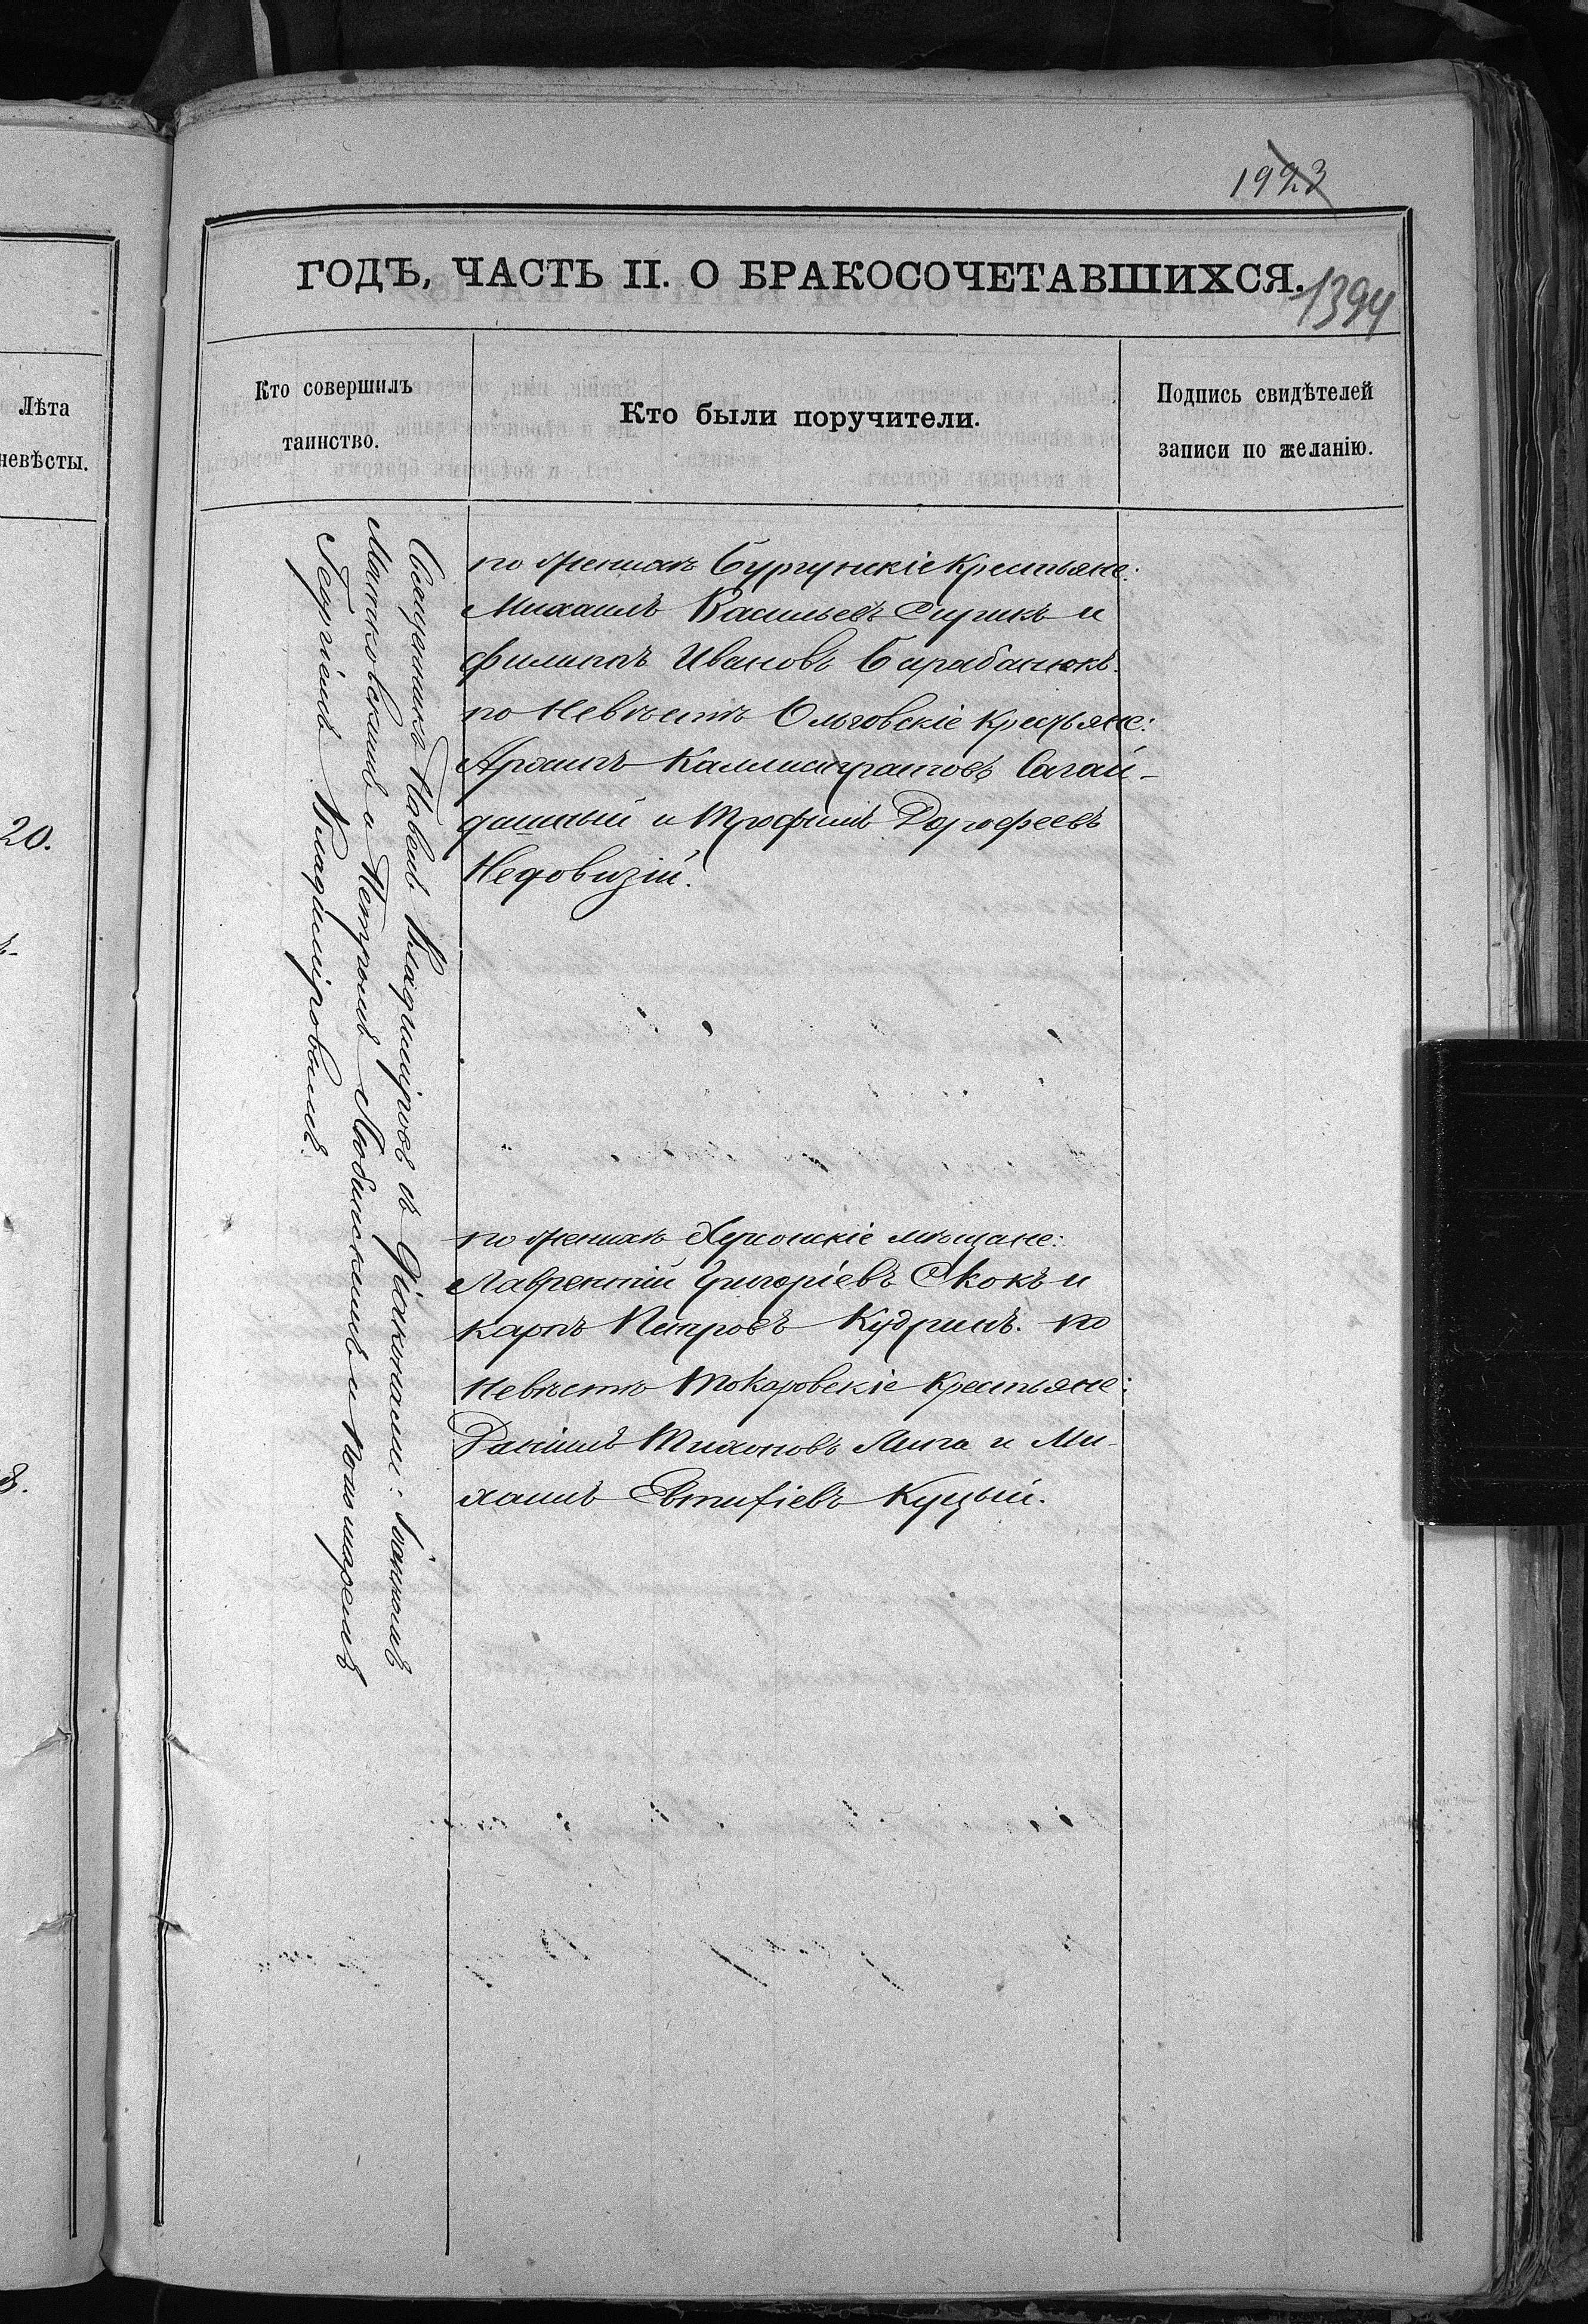 1923
ГОДЪ, ЧАСТЬ II. О БРАКОСОЧЕТАВШИХСЯ.
1394
Лѣта
невѣсты.
Кто совершилъ
таинство.
Кто были поручители.
Подпись свидѣтелей
записи по желанію.
20.
Священникъ Павелъ Владиміровъ съ Діаконами: Іоанномъ
и Петромъ Любинскимъ и Пономаремъ
Георгіемъ Владиміровымъ.
по женихѣ Бургунскіе Крестьяне:
Михаилъ Васильевъ Сирикъ и
Филиппъ Ивановъ Барабанюкъ.
по Невѣстѣ Ольговскіе Крестьяне:
Архипъ Каллистратовъ Сагай-
дашный и Трофимъ Дорофеевъ
Недовизій.
по женихѣ Херсонскіе мѣщане:
Лаврентій Григоріевъ Скокъ и
Карпъ Петровъ Кудринъ. по
Невѣстѣ Токаровскіе Крестьяне:
Даніилъ Тихоновъ Лига и Ми-
хаилъ Евтифіевъ Куцый.